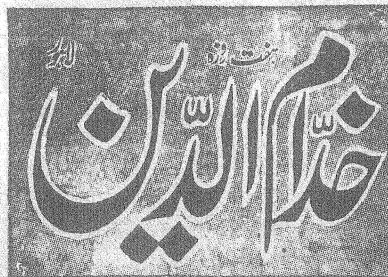 ہفت روزہ لاہور
خدّام الدّین